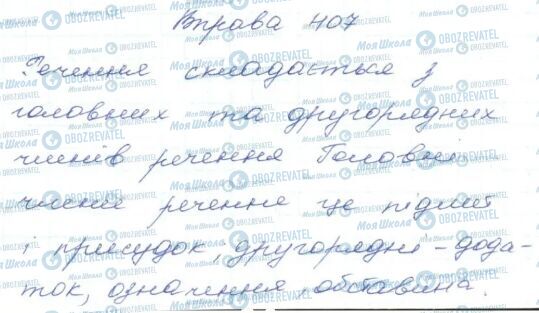 Вправа 407
Речення складається з
головних та другорядних
членів речення Головні
члени речення це підмет
і присудок, другорядні – дода-
ток, означення, обставина.